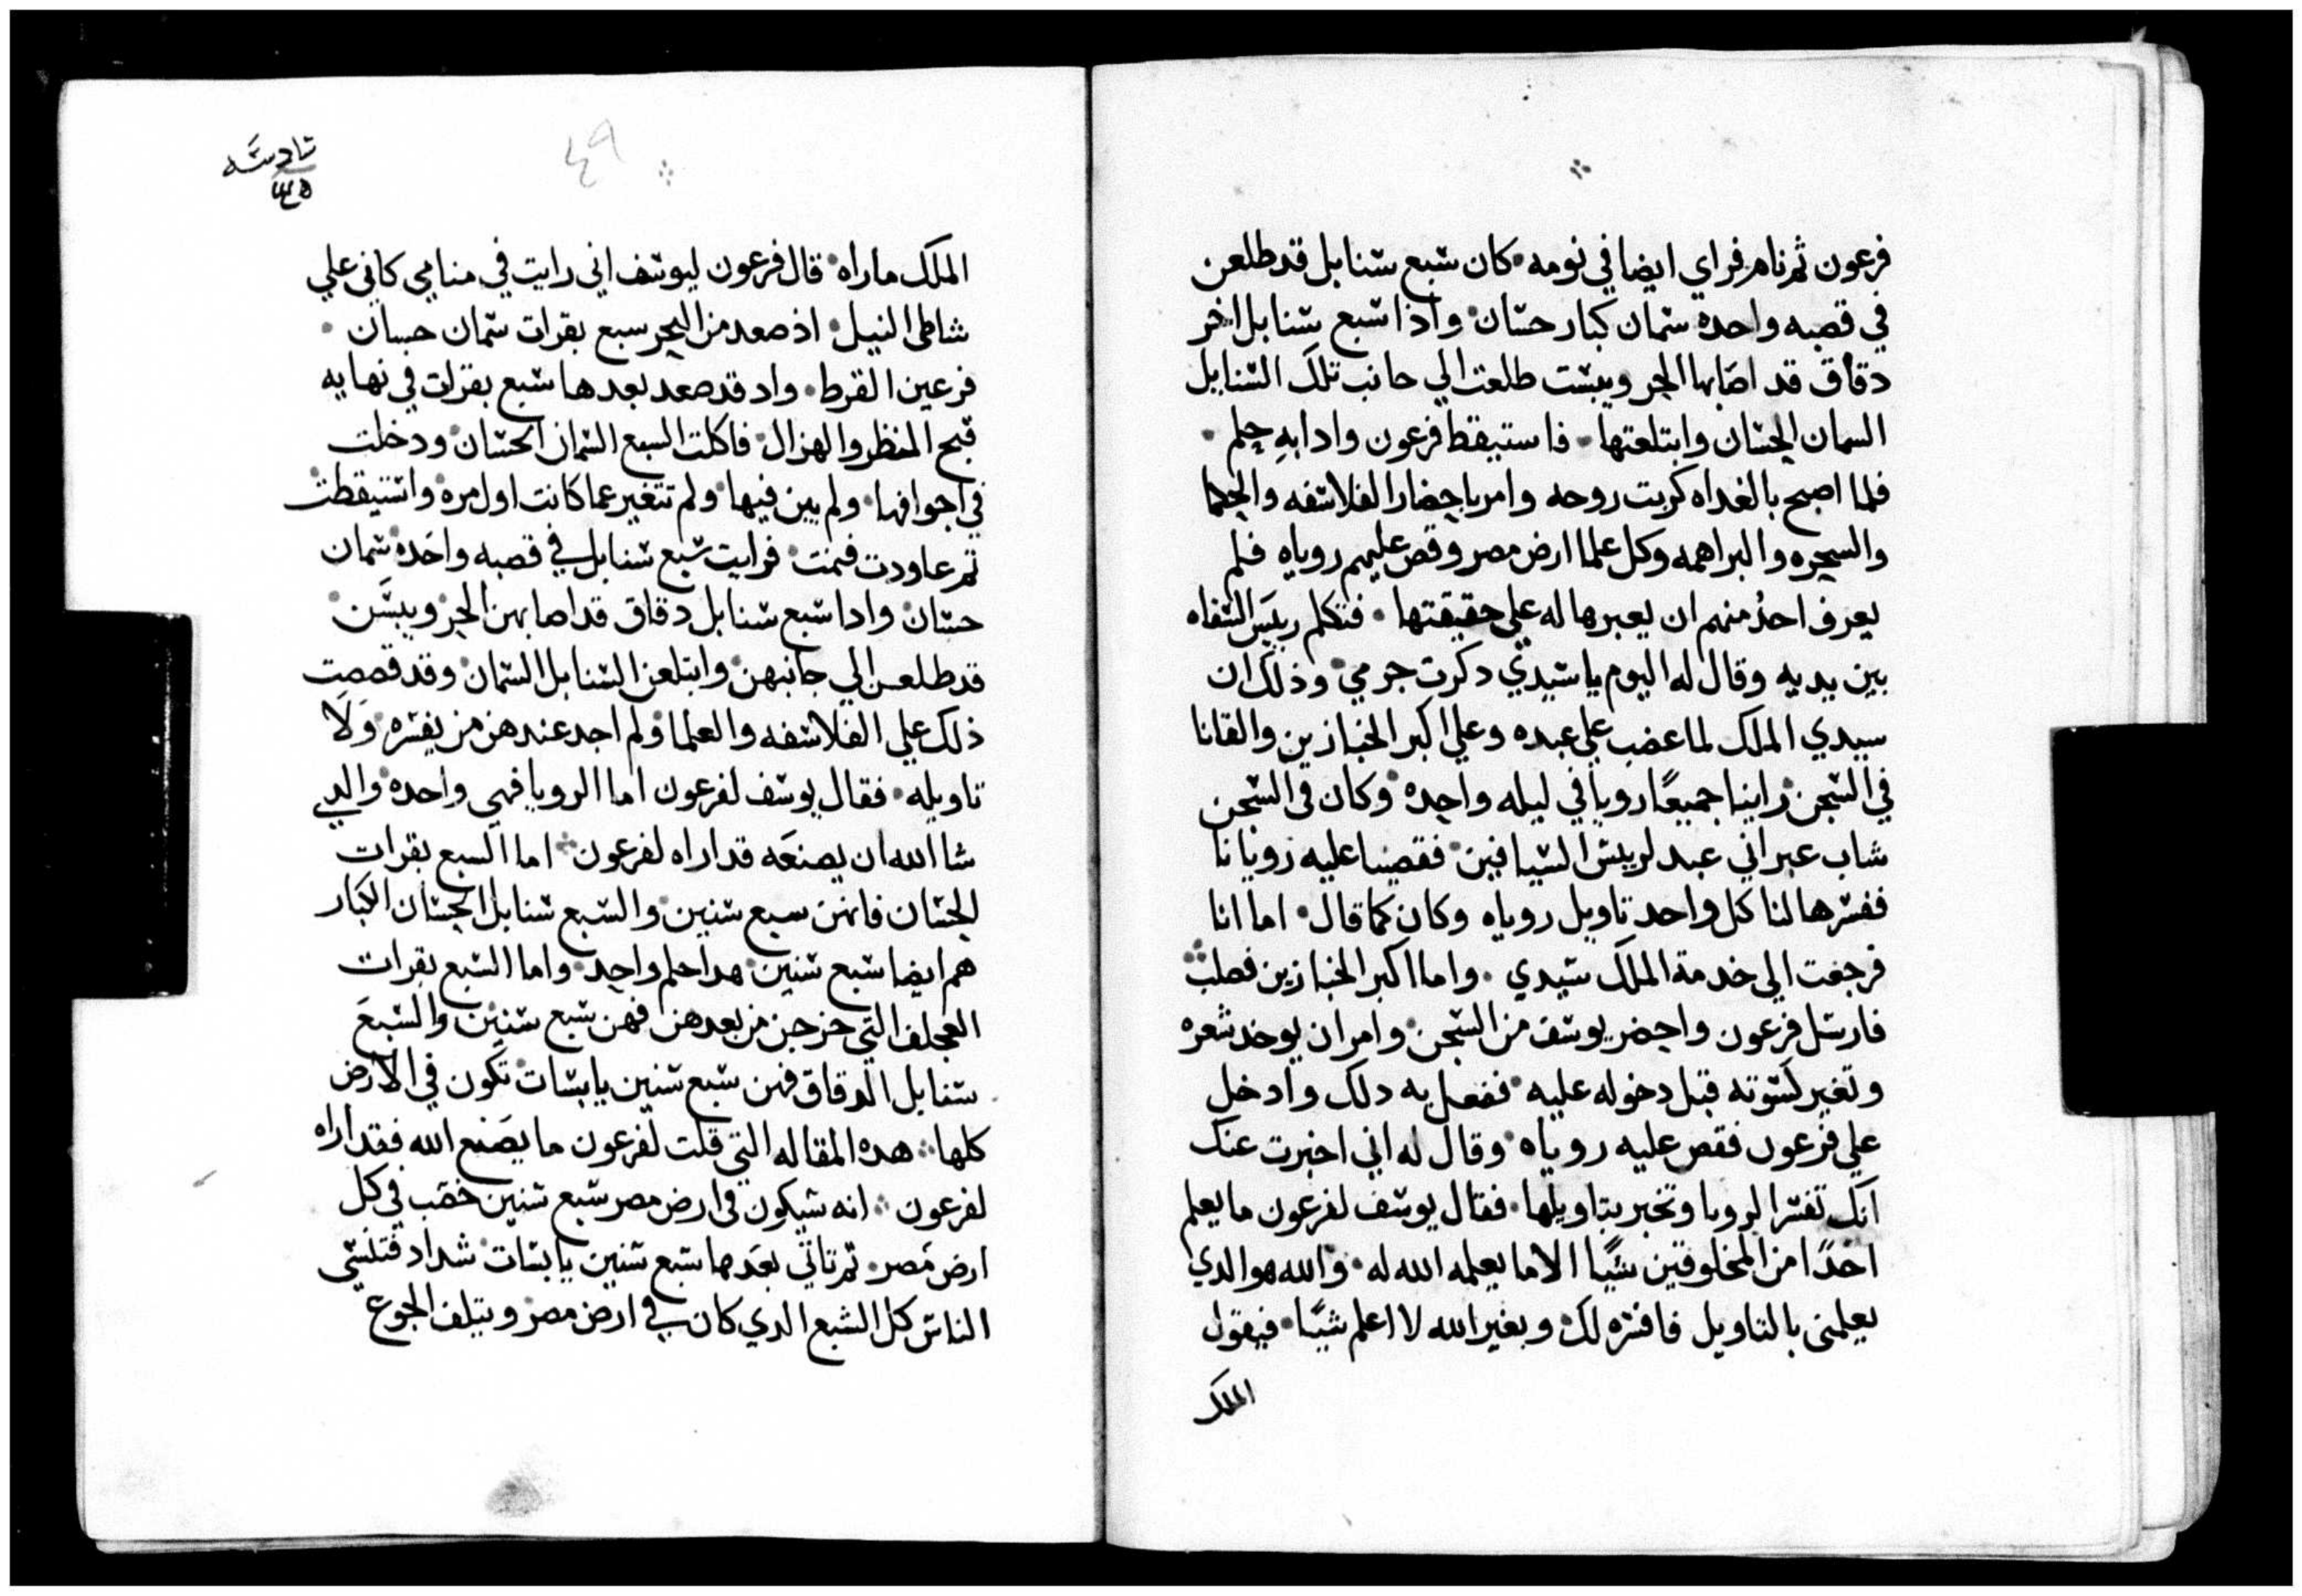 فرعون ثم نام فراي ايضا في نومه كان سبع سنابل قد طلعن
في قصبه واحده سمان كبار حسان واذا سبع سنابل اخر
دقاق قد اصابها الحر ويبست طلعت الي جانب تلك السنابل
السمان الحسان وابتلعتها فاستيقظ فرعون وادا به حلم
فلما اصبح بالغداه كربت روحه وامر باحضار الفلاسفه والحكما
والسحره والبراهمه وكل علما ارض مصر وقص عليهم روياه فلم
يعرف احد منهم ان يعبرها له علي حقيقتها فتكلم رييس السقاه
بين يديه وقال له اليوم يا سيدي دكرت جرمي وذلك ان
سيدي الملك لما غضب علي عبده وعلي اكبر الخبازين والقانا
في السجن راينا جميعًا رويا في ليله واحده وكان في السجن
شاب عبراني عبد لرييس السيافين فقصينا عليه رويانا
ففسرها لنا كل واحد تاويل روياه وكان كما قال اما انا
فرجعت الي خدمة الملك سيدي واما اكبر الخبازين فصلب
فارسل فرعون واحضر يوسف من السجن وامر ان يوخد شعره
وتغير كسوته قبل دخوله عليه ففعل به دلك وادخل
علي فرعون فقص عليه روياه وقال له اني اخبرت عنك
انك تفسر الرويا وتخبر بتاويلها فقال يوسف لفرعون ما يعلم
احدًا من المخلوقين شيًا الا ما يعلمه الله له والله هو الدي
يعلمني بالتاويل فافسره لك وبغير الله لا اعلم شيًا فيقول
الملك
سادسه
٤٩
الملك ما راه قال فرعون ليوسف اني رايت في منامي كاني علي
شاطي النيل اذ صعد من البحر سبع بقرات سمان حسان
فرعين القرط واد قد صعد بعدها سبع بقرات في نهايه
قبح المنظر والهزال فاكلت السبع السمان الحسان ودخلت
في اجوافها ولم يبن فيها ولم تتغير عما كانت اول مره واستيقظت
ثم عاودت فنمت فرايت سبع سنابل في قصبه واحده سمان
حسان وادا سبع سنابل دقاق قد اصابهن الحر ويبسن
قد طلعن الي جانبهن وابتلعن السنابل السمان وقد قصصت
ذلك علي الفلاسفه والعلما ولم اجد عندهن من يفسره ولا
تاويله فقال يوسف لفرعون اما الرويا فهي واحده والدي
شا الله ان يصنعه قد اراه لفرعون اما السبع بقرات
الحسان فانهن سبع سنين والسبع سنابل الحسان الكبار
هم ايضا سبع سنين هدا حلم واحد واما السبع بقرات
العجاف التي خرجن من بعدهن فهن سبع سنين والسبع
سنابل الدقاق فهن سبع سنين يابسات تكون في الارض
كلها هده المقاله التي قلت لفرعون ما يصنع الله فقد اراه
لفرعون انه سيكون في ارض مصر سبع سنين خصب في كل
ارض مصر ثم تاتي بعدها سبع سنين يابسات شداد فتنسي
الناس كل الشبع الدي كان في ارض مصر ويتلف الجوع